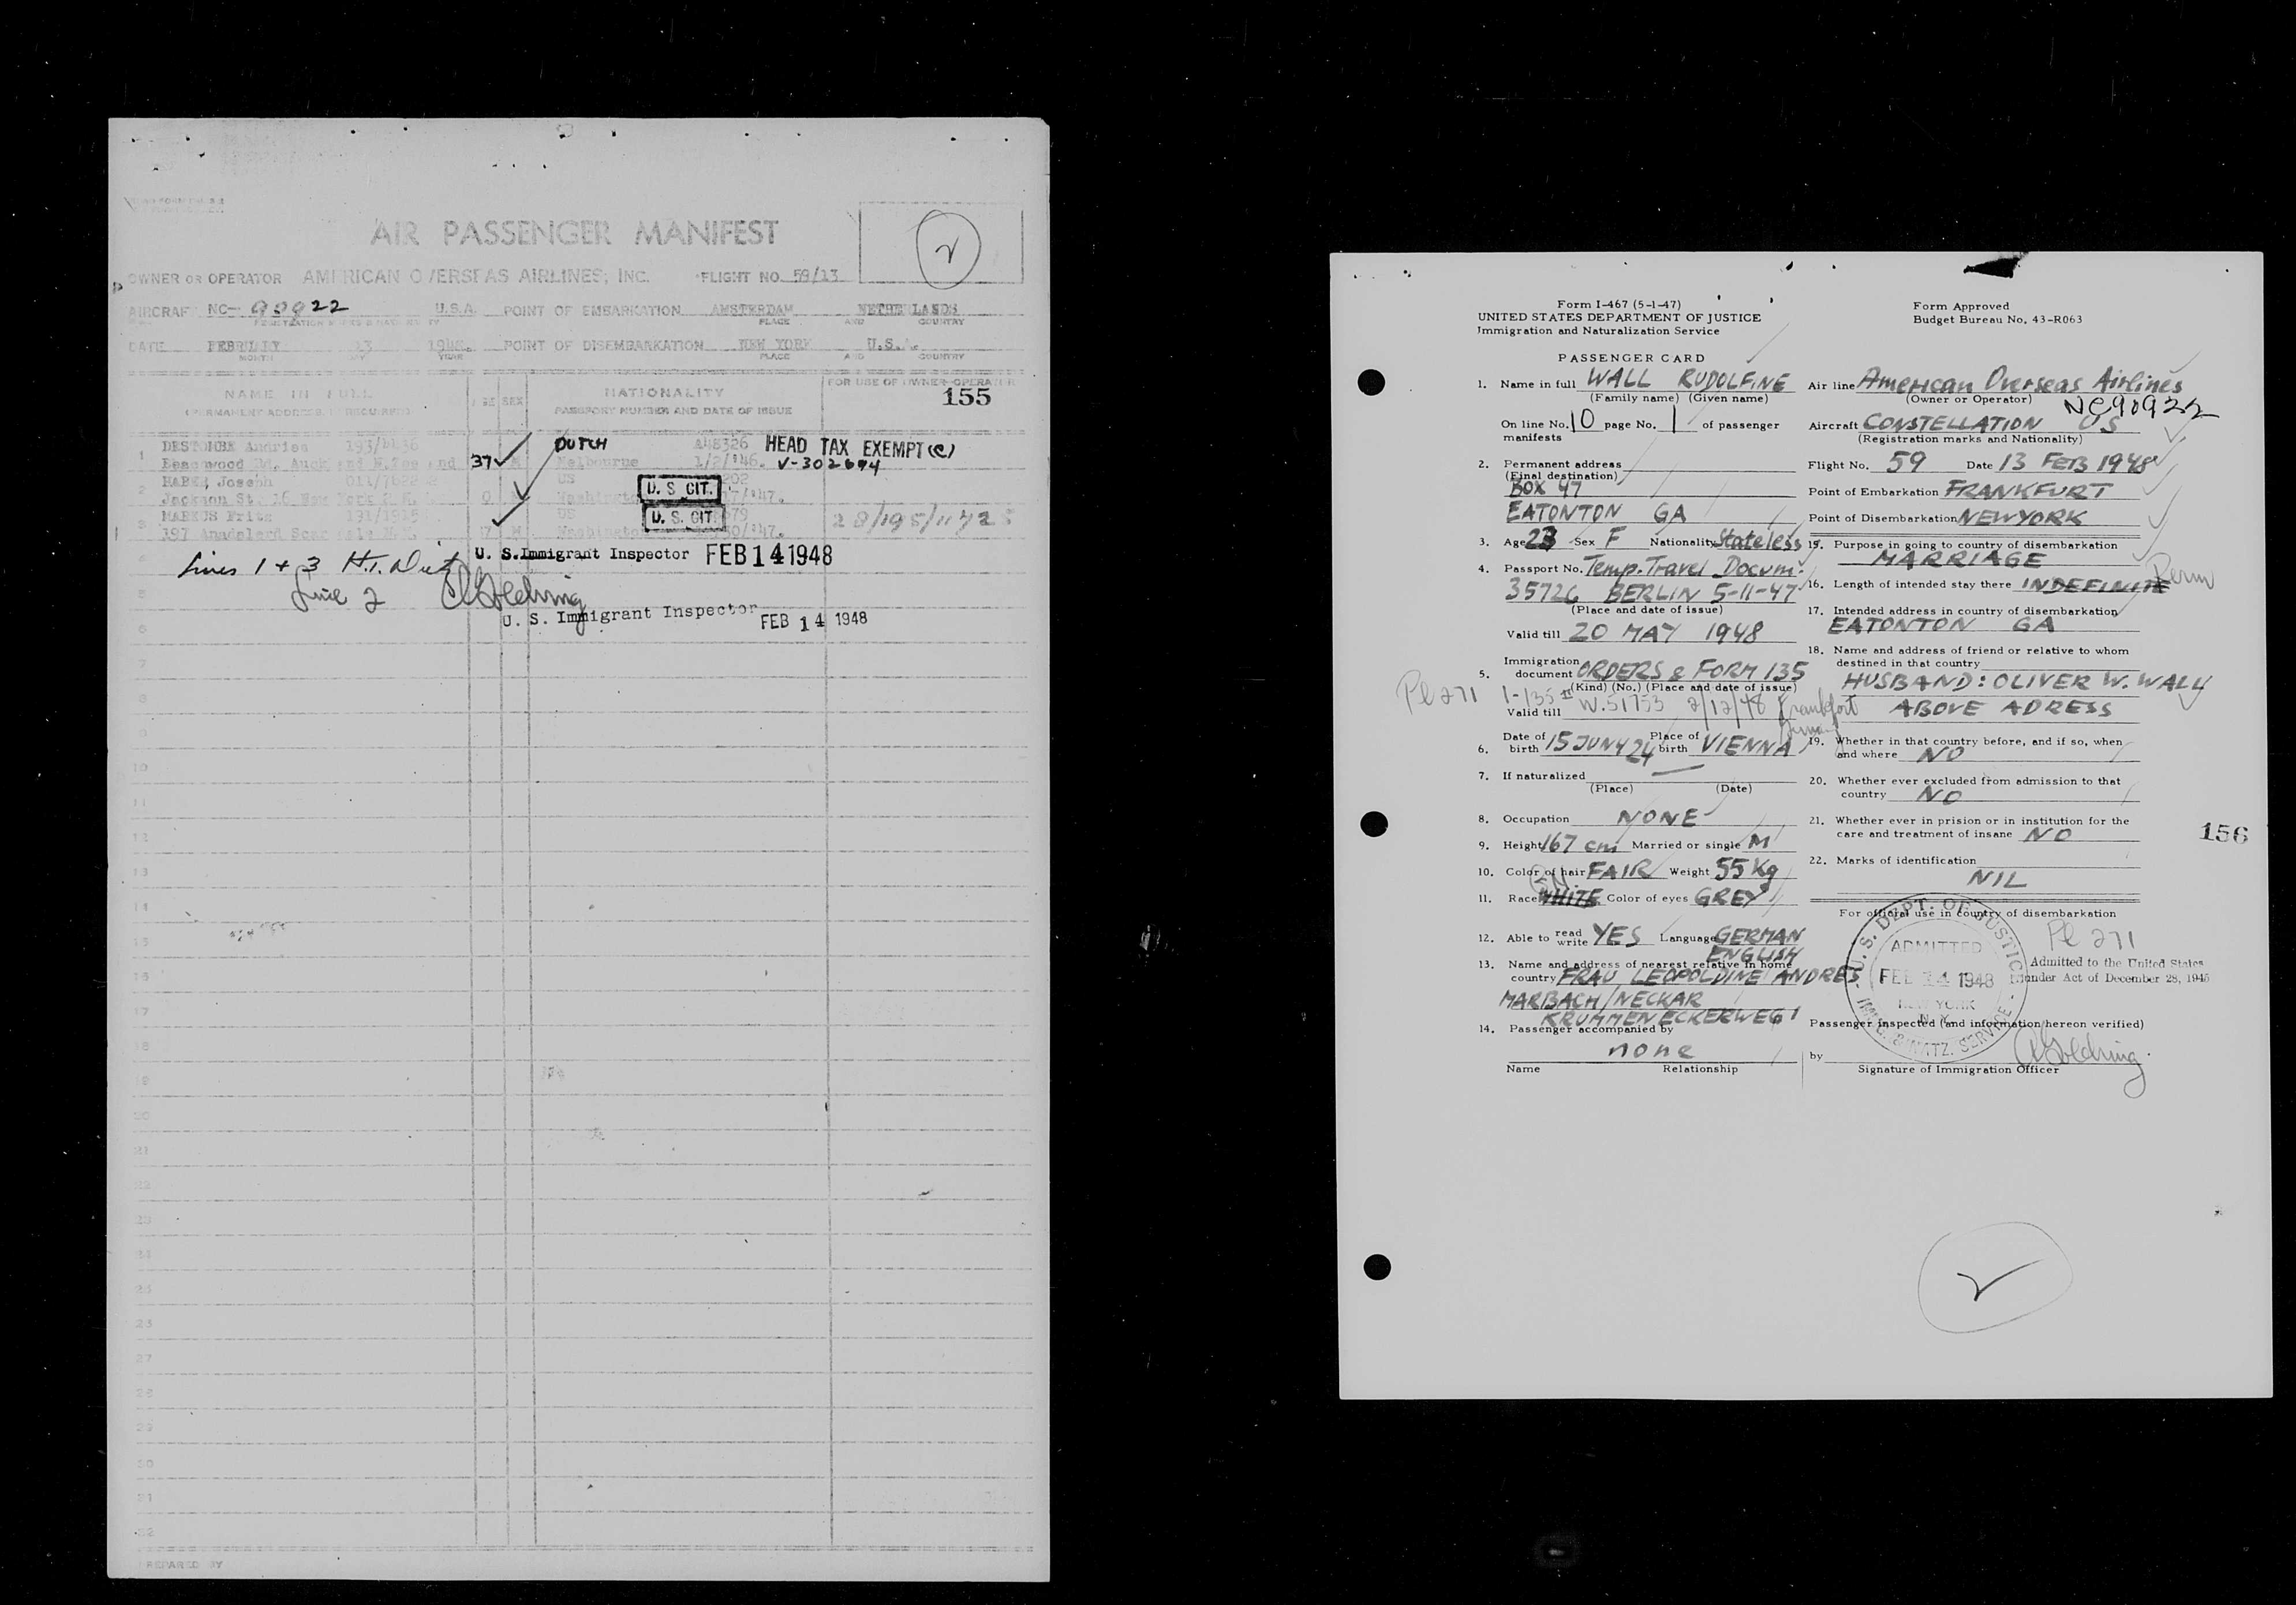 AIR PASSENGER MANIFEST
2
OWNER OR OPERATOR AMERICAN OVERSEAS AIRLINES, INC. FLIGHT NO. 59/13
AIRCRAFT NC- 90922 U.S.A. POINT OF EMBARKATION AMSTERDAM NETHERLANDS
PLACE AND COUNTRY
DATE FEBRUARY 13 1948. POINT OF DISEMBARKATION NEW YORK U.S.A.
MONTH DAY YEAR PLACE AND COUNTRY
NAME IN FULL AGE SEX NATIONALITY FOR USE OF OWNER OPERATOR
(PERMANENT ADDRESS REQUIRED) PASSPORT NUMBER AND DATE OF ISSUE 155
1 DESTOMBE Andries DUTCH A48326 HEAD TAX EXEMPT (C)
37 M Melbourne 1/2/'46. V-302694
2 HABER, Joseph US
Jackson St. 16 New York U. S. CIT.
3 MARKUS Fritz 191/1915 US U. S. CIT.
M Washington
Lines 1 + 3 H.I. Dist U. S. Immigrant Inspector FEB 14 1948
Line 2 Goldring
U. S. Immigrant Inspector FEB 14 1948
6
7
8
9
10
11
12
13
14
15
16
17
18
19
20
21
22
23
27
29
PREPARED BY
Form I-467 (5-1-47)
UNITED STATES DEPARTMENT OF JUSTICE
Immigration and Naturalization Service
Form Approved
Budget Bureau No. 43-R063
PASSENGER CARD
1. Name in full WALL RUDOLFINE
(Family name) (Given name)
On line No. 10 page No. 1 of passenger
manifests
2. Permanent address
(Final destination)
BOX 47
EATONTON GA
3. Age 23 Sex F Nationality Stateless
4. Passport No. Temp. Travel Docum.
35726 BERLIN 5-11-47
(Place and date of issue)
Valid till 20 MAY 1948
5. Immigration
document ORDERS & FORM 135
(Kind) (No.) (Place and date of issue)
Pl 271 I-135
Valid till W.51753 2/12/48 Frankfort
Germany
6. Date of birth 15 JUNY 24 Place of birth VIENNA
7. If naturalized
(Place) (Date)
8. Occupation NONE
9. Height 167 cm Married or single M
10. Color of hair FAIR Weight 55 Kg
11. Race WHITE Color of eyes GREY
12. Able to read write YES Language GERMAN
ENGLISH
13. Name and address of nearest relative in home
country FRAU LEOPOLDINE ANDRES
MARBACH/NECKAR
KRUMMENECKERWEG 1
14. Passenger accompanied by
none
Name Relationship
Air line American Overseas Airlines
(Owner or Operator) NC90922
Aircraft CONSTELLATION US
(Registration marks and Nationality)
Flight No. 59 Date 13 FEB 1948
Point of Embarkation FRANKFURT
Point of Disembarkation NEWYORK
15. Purpose in going to country of disembarkation
MARRIAGE
16. Length of intended stay there INDEFINITE Perm
17. Intended address in country of disembarkation
EATONTON GA
18. Name and address of friend or relative to whom
destined in that country
HUSBAND: OLIVER W. WALL
ABOVE ADRESS
19. Whether in that country before, and if so, when
and where NO
20. Whether ever excluded from admission to that
country NO
21. Whether ever in prision or in institution for the
care and treatment of insane NO
156
22. Marks of identification
NIL
For official use in country of disembarkation
U. S. DEPT. OF JUSTICE
ADMITTED
FEB 14 1948
NEW YORK
N. Y.
IMMIG. & NATZ. SERVICE
Pl 271
Admitted to the United States
under Act of December 28, 1945
Passenger inspected (and information hereon verified)
by Goldring
Signature of Immigration Officer